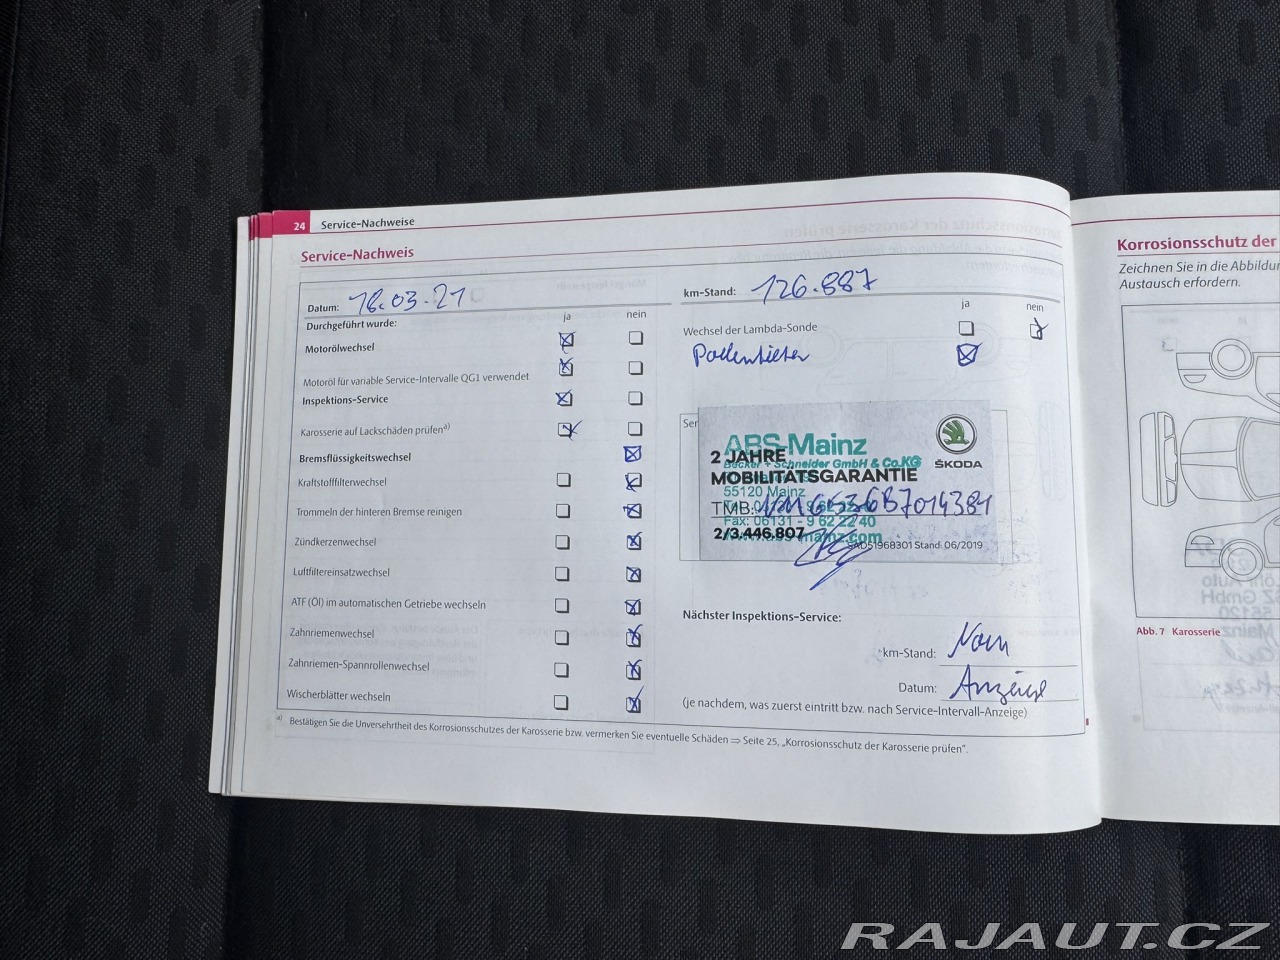 24 Service-Nachweise
Service-Nachweis
Datum: 18.03.21
km-Stand: 126.887
Durchgeführt wurde: ja nein
Motorölwechsel
Motoröl für variable Service-Intervalle QG1 verwendet
Inspektions-Service
Karosserie auf Lackschäden prüfen a)
Bremsflüssigkeitswechsel
Kraftstofffilterwechsel
Trommeln der hinteren Bremse reinigen
Zündkerzenwechsel
Luftfiltereinsatzwechsel
ATF (Öl) im automatischen Getriebe wechseln
Zahnriemenwechsel
Zahnriemen-Spannrollenwechsel
Wischerblätter wechseln
ja nein
Wechsel der Lambda-Sonde
Pollenfilter
Ser
ABS-Mainz
2 JAHRE
Becker + Schneider GmbH & Co.KG
ŠKODA
MOBILITÄTSGARANTIE
55120 Mainz
TMB:
Fax: 06131 - 9 62 22 40
2/3.446.807
SAD51968301 Stand: 06/2019
Nächster Inspektions-Service:
km-Stand: Nach
Datum: Anzeige
(je nachdem, was zuerst eintritt bzw. nach Service-Intervall-Anzeige)
a) Bestätigen Sie die Unversehrtheit des Korrosionsschutzes der Karosserie bzw. vermerken Sie eventuelle Schäden ⇒ Seite 25, „Korrosionsschutz der Karosserie prüfen“.
Korrosionsschutz der
Zeichnen Sie in die Abbildun
Austausch erfordern.
Abb. 7 Karosserie
RAJAUT.CZ